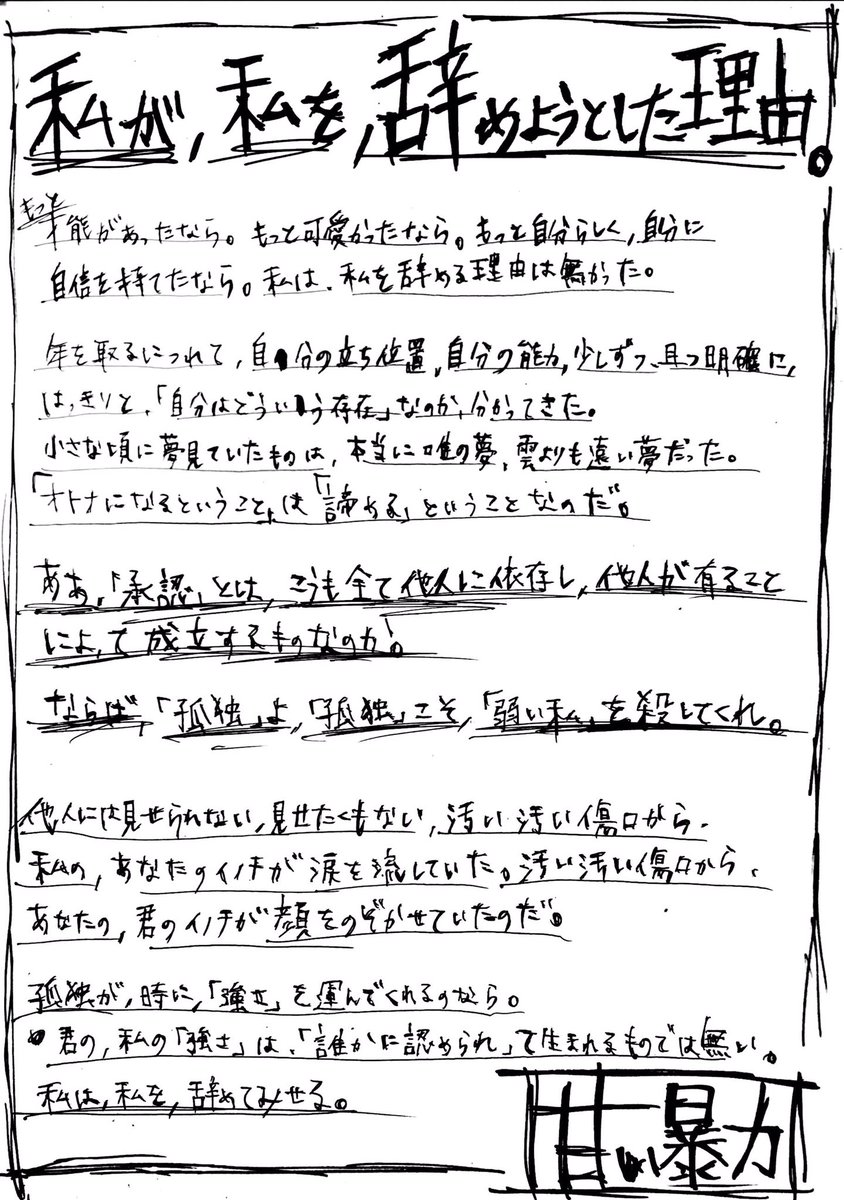 私が,私を,辞めようとした理由。
もっと
才能があったなら。もっと可愛かったなら。もっと自分らしく,自分に
自信を持てたなら。私は、私を辞める理由は無かった。
年を取るにつれて,自分の立ち位置,自分の能力,少しずつ、且つ明確に,
はっきりと、「自分はどういう存在」なのか,分かってきた。
小さな頃に夢見ていたものは,本当に唯の夢,雲よりも遠い夢だった。
「オトナになるということ」は「諦める」ということなのだ。
ああ,「承認」とは,こうも全て他人に依存し,他人が有ること
によって成立するものなのか。
ならば,「孤独」よ,「孤独」こそ,「弱い私」を殺してくれ。
他人には見せられない,見せたくもない,汚い汚い傷口から、
私の,あなたのイノチが涙を流していた。汚い汚い傷口から、
あなたの,君のイノチが顔をのぞかせていたのだ。
孤独が,時に,「強さ」を運んでくれるのなら。
君の,私の「強さ」は、「誰かに認められ」て生まれるものでは無い。
私は,私を,辞めてみせる。
甘い暴力